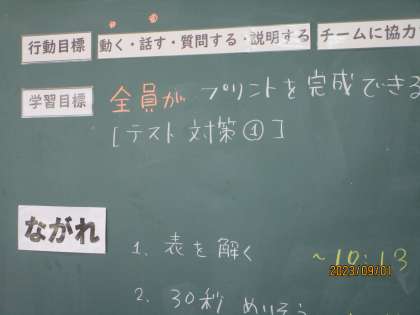 行動目標 動く・話す・質問する・説明する チームに協力
学習目標 全員が プリントを完成できる
[テスト対策①]
ながれ
1. 表を解く ~10:13
2. 30秒
2023/09/01